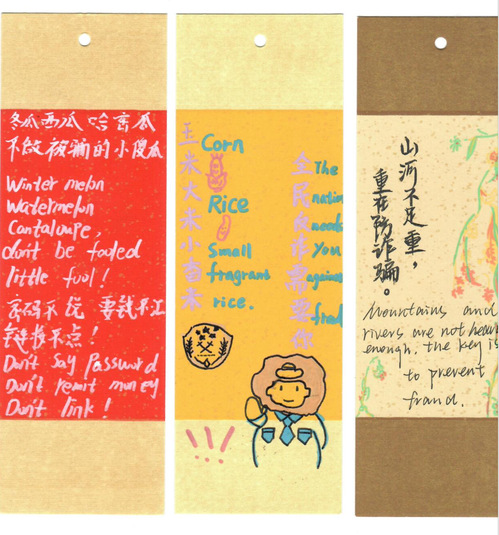 冬瓜西瓜哈密瓜
不做被骗的小傻瓜
Winter melon
Watermelon
Cantaloupe,
don't be fooled
little fool!
密码不说 要钱不汇
链接不点!
Don't say Password
Don't remit money
Don't link!
玉米大米小香米
Corn
Rice
Small
fragrant
rice.
全民反诈需要你
The
natio
needs
You
against
山河不足重，
重在防诈骗。
Mountains and
rivers are not heav
enough. the key is
to prevent
fraud.